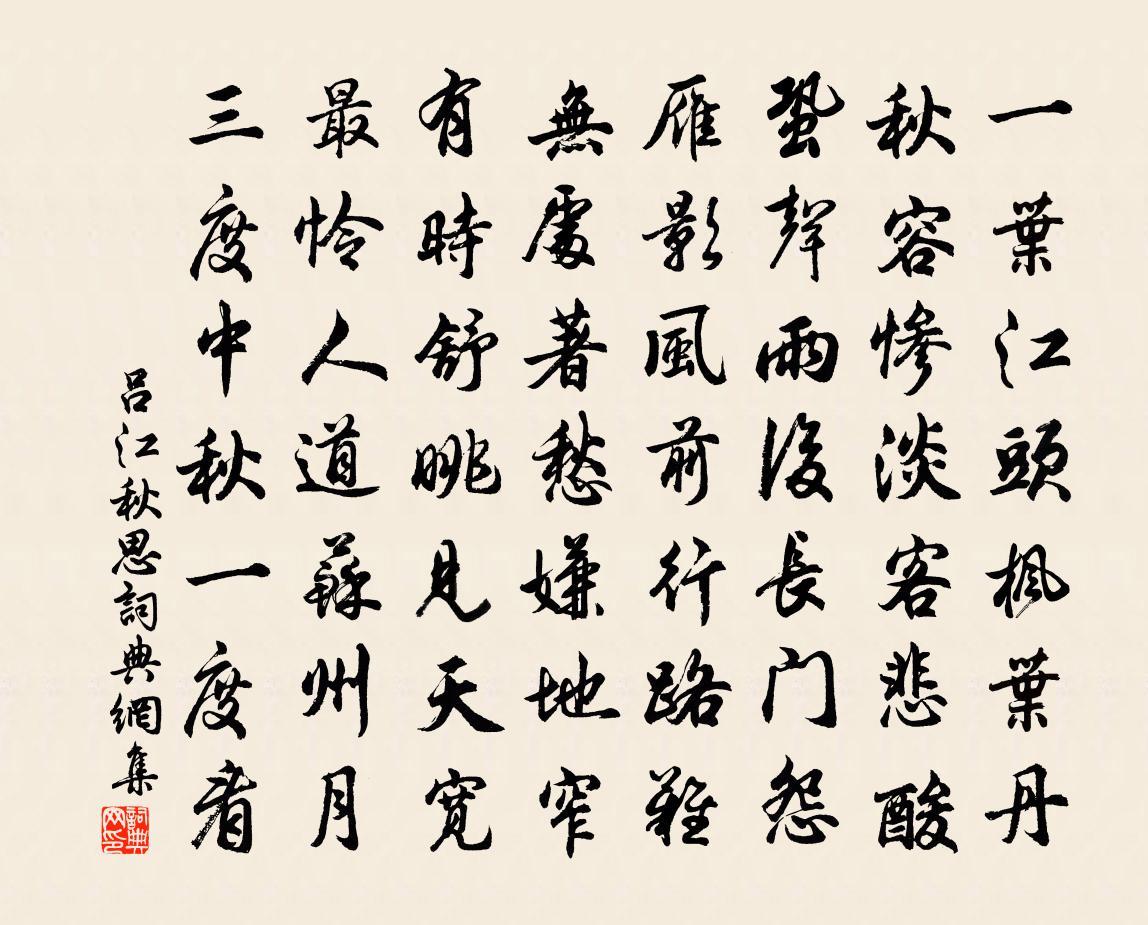 一葉江頭楓葉丹
秋容慘淡客悲酸
蛩聲雨後長門怨
雁影風前行路難
無處著愁嫌地窄
有時舒眺見天寬
最怜人道蘇州月
三度中秋一度看
呂江秋思詞典網集
詞典
网印